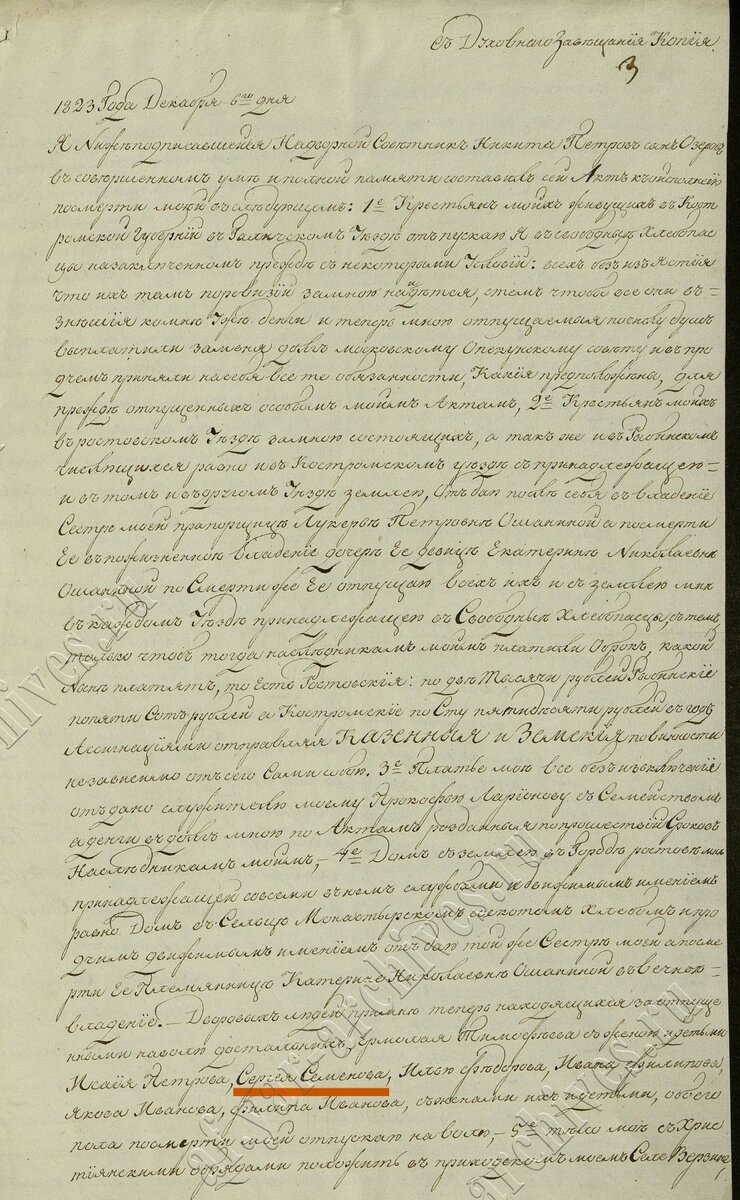 Съ Духовнаго Завещанія Копія.
3
1823 Года Декабря 6го дня
Я Нижеподписавшейся Надворной Советникъ Никита Петровъ сынъ Озеровъ
въ совершенномъ уме и полной памяти составилъ сей Актъ къ исполненію
посмерти моей въ следующемъ: 1е Крестьянъ моихъ живущихъ въ Кост
ромской Губерніи въ Галичскомъ Уезде отпускаю я въ свободныя Хлебопаш
цы назаключенномъ прежде съ некоторыми Условіи: всехъ безъ изъятія
что ихъ тамъ поревизіи замною найдется, стемъ чтобы все они в-
знешія комне деньги и теперь мною отпущаемыя
выплатили заменя долгъ московскому Опекунскому совету и впро
чемъ приняли насебя все те обязанности, Какія предположены, для
прежде отпущенныхъ особымъ моимъ Актамъ, 2е Крестьянъ моихъ
въ ростовскомъ Уезде замною состоящихъ, а такъ же и въ Рыбинскомъ
числящихся равно и въ Костромскомъ уезде съ принадлежащею-
и въ томъ и въ другомъ Уезде землею, Отдаю после себя въ владеніе
Сестре моей прапорщице Лукерье Петровне Ошаниной а посмерти
Ее въ пожизненное Владеніе дочере Ее девице Екатерине Николаевне
Ошаниной по Смерти же Ее отпущаю всехъ ихъ и съ землею мне
въ каждомъ Уезде принадлежащею въ Свободныя Хлебопашцы, стемъ
только чтобъ тогда наследникамъ моимъ платили Оброкъ, какой
Ныне платятъ, то Есть Ростовскія: по две Тысячи рублей Рыбинскіе
попяти Сотъ рублей а Костромскіе по Сту пятидесяти рублей въ годъ
Ассигнаціями отправляя Казенныя и Земскія повинности
независимо отъ сего Сами собою. 3е Платье мое все безъ изключенія
отъдано служителю моему Прокофью Ларіонову съ Семействомъ
а деньги въ долгъ мною по Актамъ розданныя попрошествіи Сроковъ
Наследникамъ моимъ,- 4е Домъ съ землею въ Городе ростове мне
принадлежащей совсеми внемъ службами и движимымъ именіемъ
равно Домъ въ Сельце Монастырскомъ соскотомъ Хлебомъ и про
чимъ движимымъ именіемъ отъдаю той же Сестре моей а посме
рти Ее Племяннице Катерине Николаевне Ошаниной въ вечное-
владеніе.- Дворовыхъ людей примне теперь находящихся заотпуще
нными наволю достальныхъ, Ермолая Тимофеева съ женою и детьми
Исаія Петрова, Сергея Семенова, Илью Федорова, Ивана Филипова,
Якова Иванова, Филипа Иванова, съ женами ихъ и детьми, обоего
пола посмерти моей отпускаю наволю,- 5е тело мое съ Хрис
тіянскими обрядами положить въ приходскомъ моемъ Селе Верзине,
archives.ru
archives.ru
archives.ru